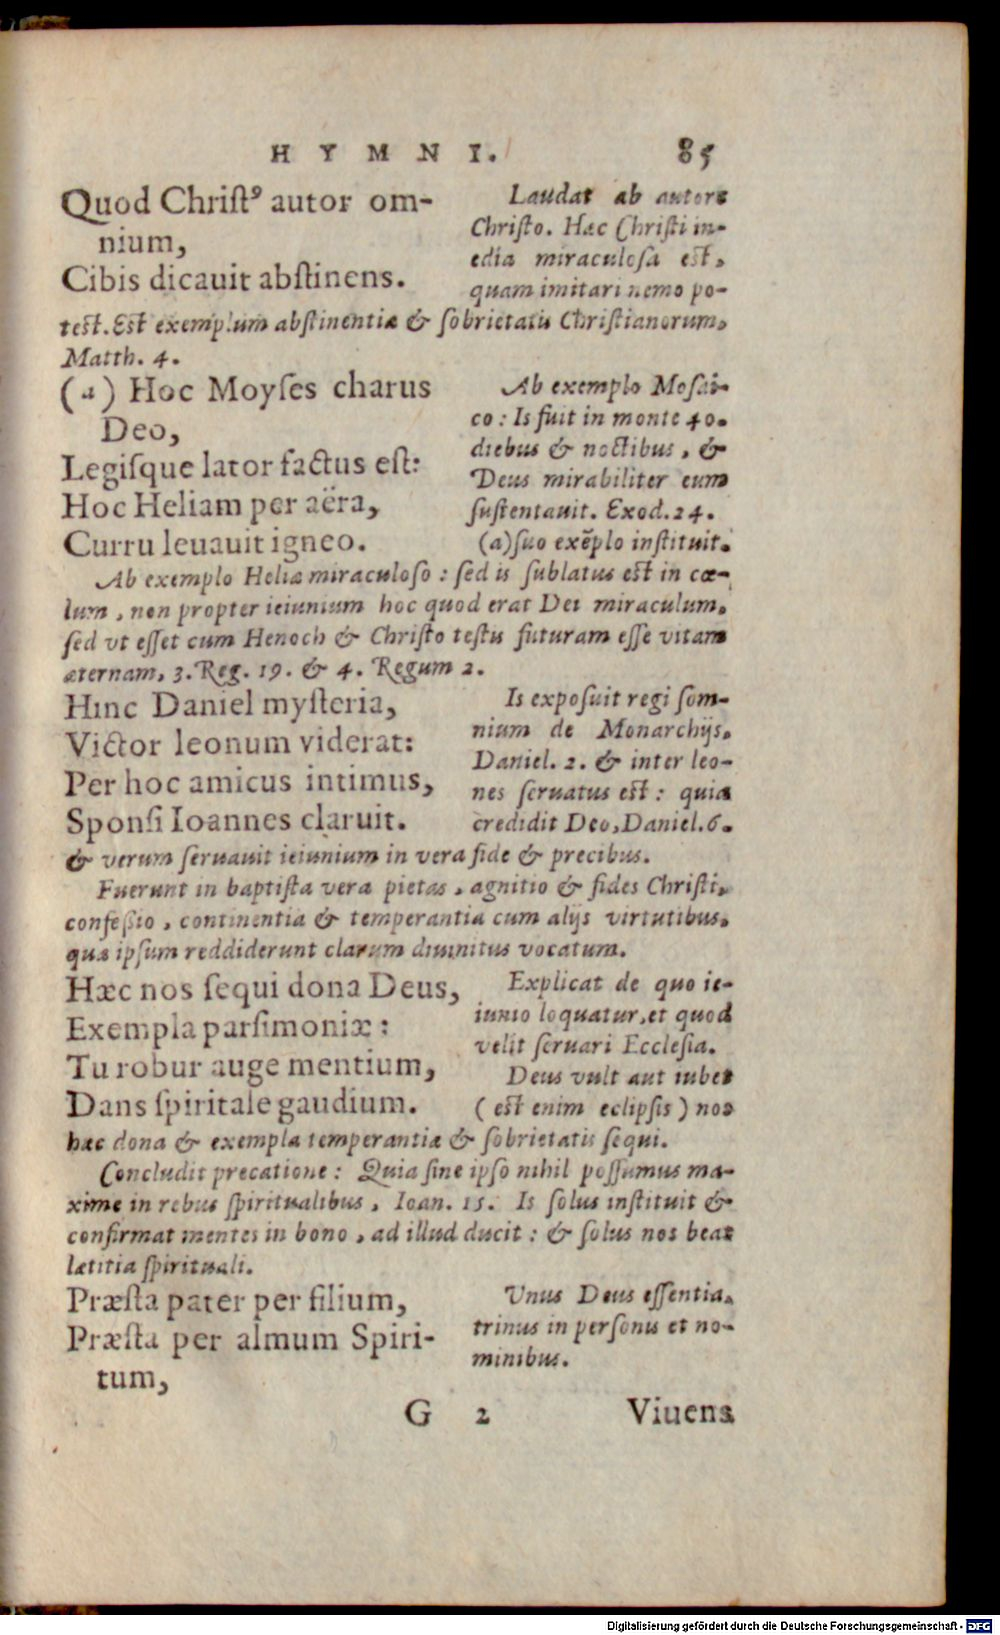 HYMNI. 85
Quod Christꝰ autor om-
nium,
Cibis dicauit abstinens.
Laudat ab autore
Christo. Hæc Christi in-
edia miraculosa est,
quam imitari nemo po-
test. Est exemplum abstinentiæ & sobrietatis Christianorum,
Matth. 4.
(a) Hoc Moyses charus
Deo,
Legisque lator factus est:
Hoc Heliam per aëra,
Curru leuauit igneo.
Ab exemplo Mosai-
co: Is fuit in monte 40.
diebus & noctibus, &
Deus mirabiliter eum
sustentauit. Exod. 24.
(a) suo exẽplo instituit.
Ab exemplo Heliæ miraculoso: sed is sublatus est in cœ-
lum, non propter ieiunium hoc quod erat Dei miraculum,
sed vt esset cum Henoch & Christo testis futuram esse vitam
æternam, 3. Reg. 19. & 4. Regum 2.
Hinc Daniel mysteria,
Victor leonum viderat:
Per hoc amicus intimus,
Sponsi Ioannes claruit.
Is exposuit regi som-
nium de Monarchijs,
Daniel. 2. & inter leo-
nes seruatus est: quia
credidit Deo, Daniel. 6.
& verum seruauit ieiunium in vera fide & precibus.
Fuerunt in baptista vera pietas, agnitio & fides Christi,
confeßio, continentia & temperantia cum alijs virtutibus,
quæ ipsum reddiderunt clarum diuinitus vocatum.
Hæc nos sequi dona Deus,
Exempla parsimoniæ:
Tu robur auge mentium,
Dans spiritale gaudium.
Explicat de quo ie-
iunio loquatur, et quod
velit seruari Ecclesia.
Deus vult aut iubet
(est enim eclipsis) nos
hæc dona & exempla temperantiæ & sobrietatis sequi.
Concludit precatione: Quia sine ipso nihil possumus ma-
xime in rebus spiritualibus, Ioan. 15. Is solus instituit &
confirmat mentes in bono, ad illud ducit: & solus nos beat
lætitia spirituali.
Præsta pater per filium,
Præsta per almum Spiri-
tum,
Vnus Deus essentia,
trinus in personis et no-
minibus.
G 2 Viuens
Digitalisierung gefördert durch die Deutsche Forschungsgemeinschaft - DFG